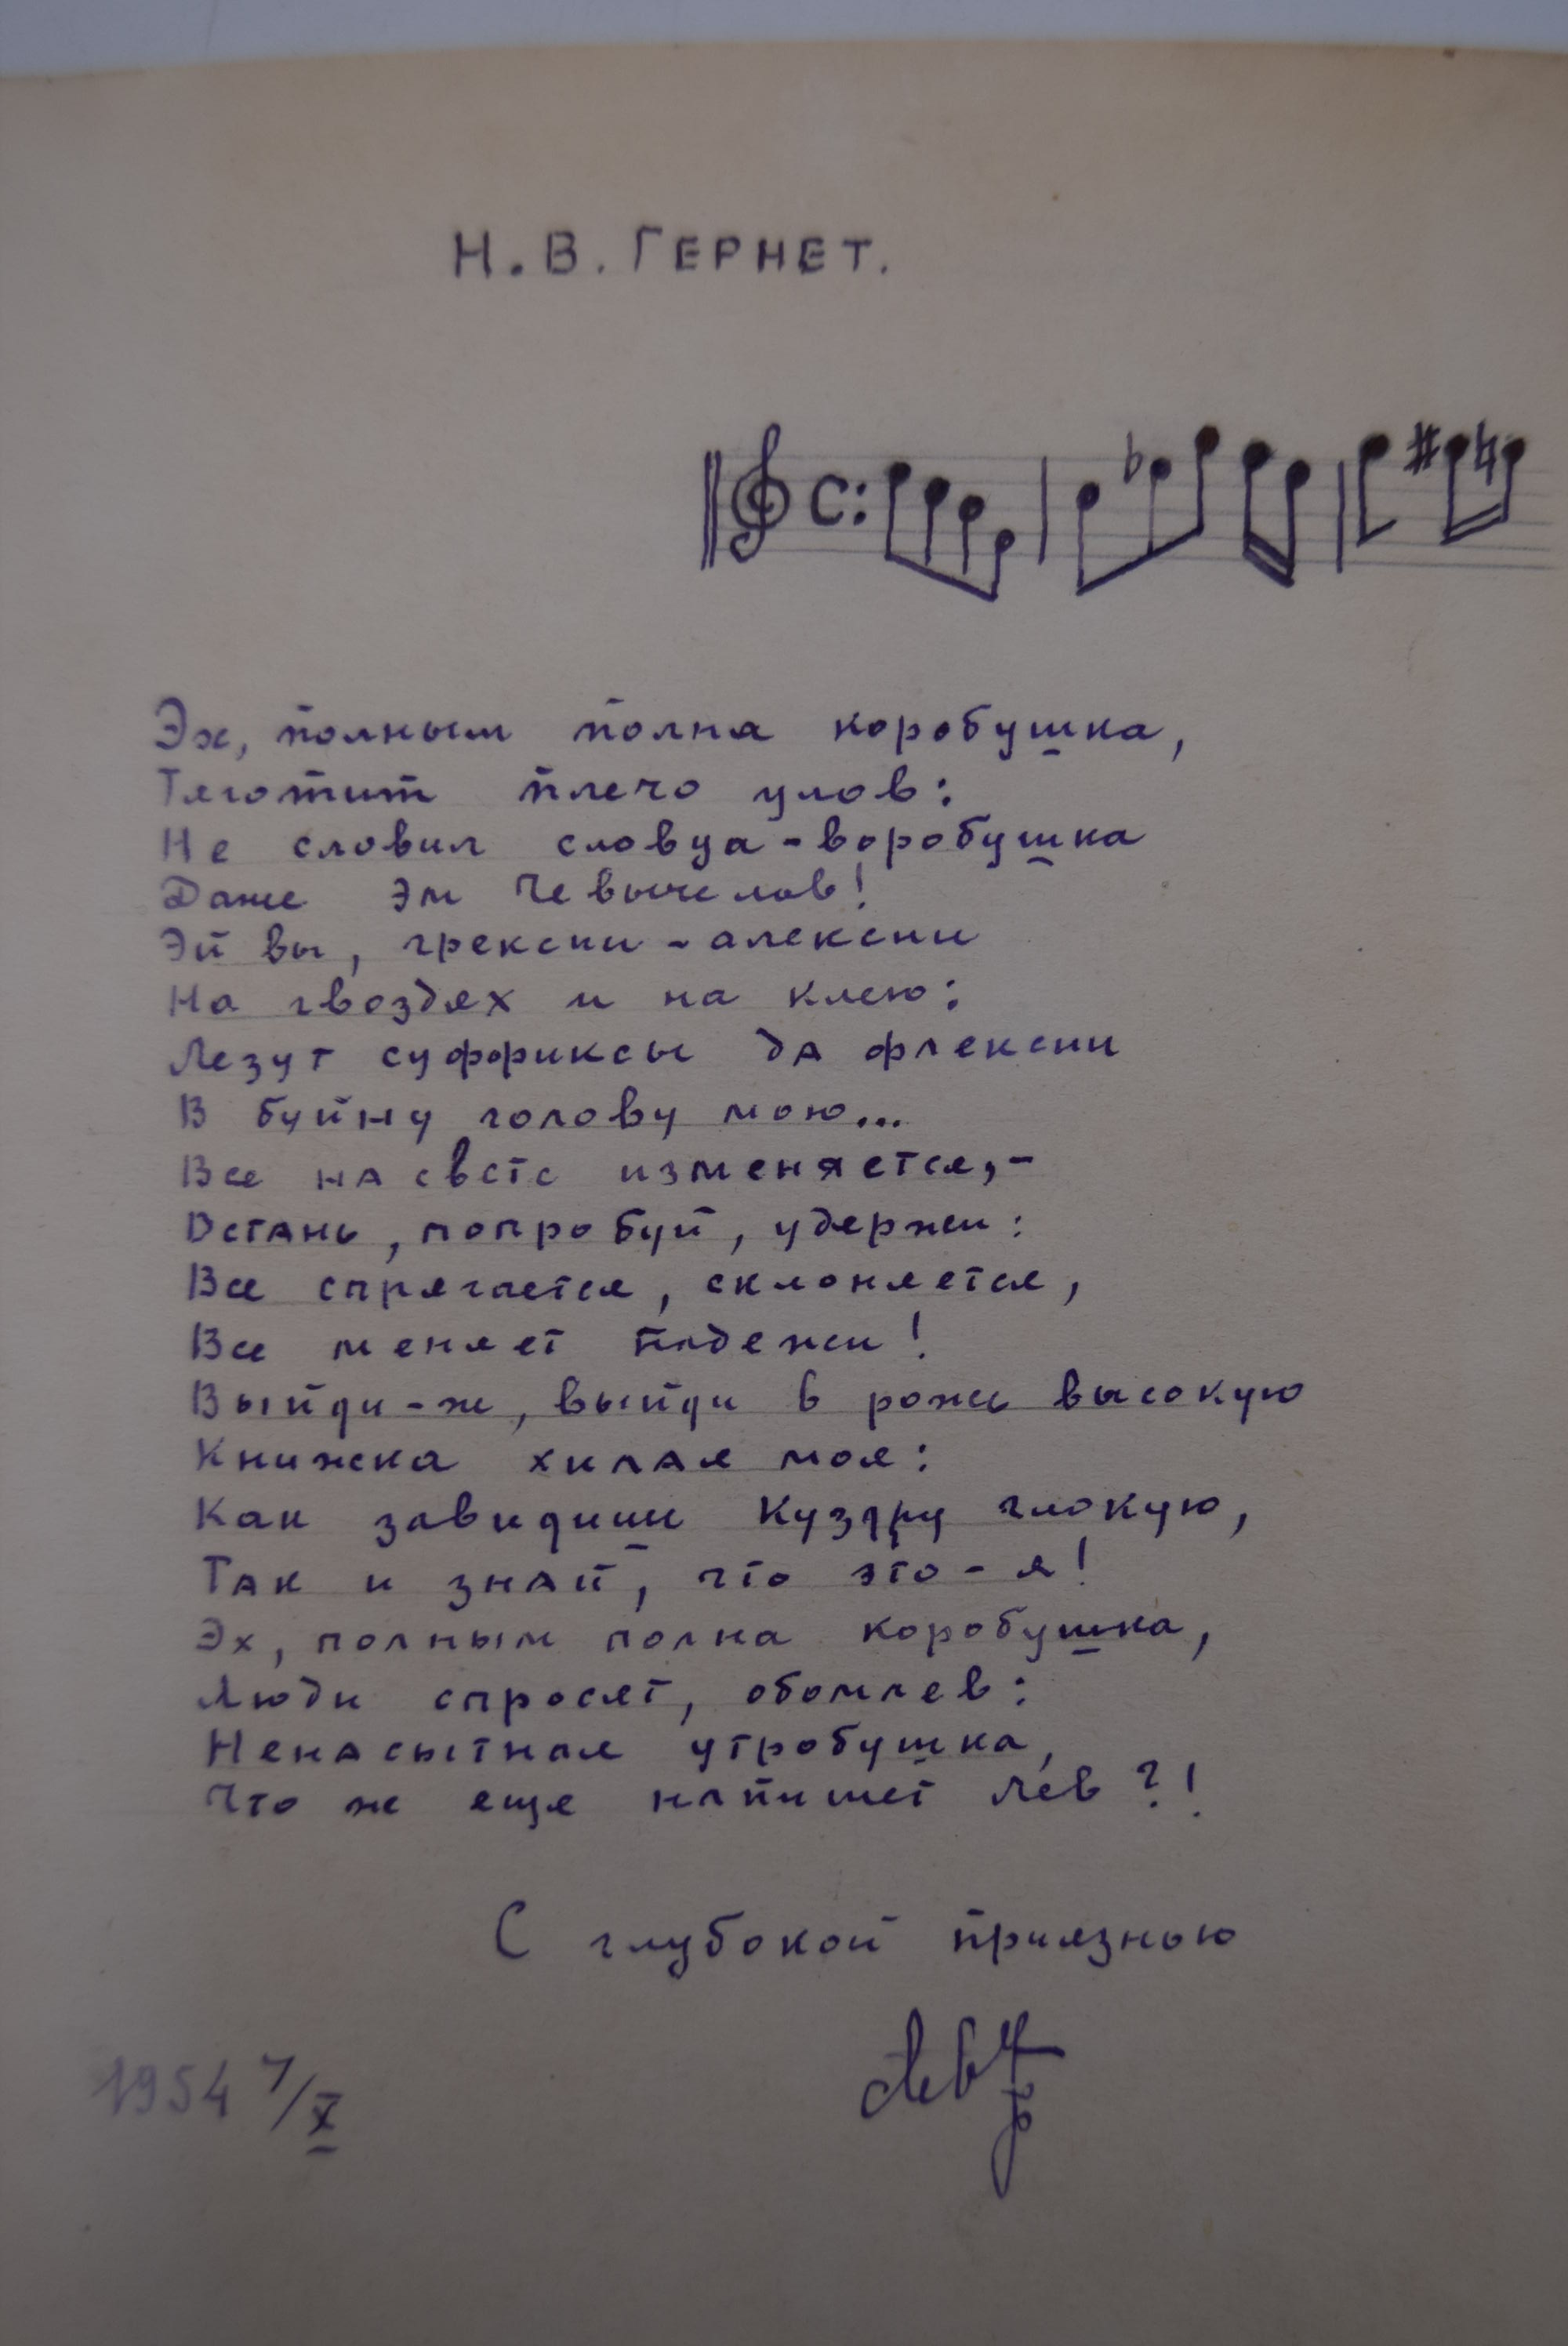 Н.В. ГЕРНЕТ.
С:
Эх, полным полна коробушка,
Тяготит плечо улов:
Не словил словца-воробушка
Даже Эм Чевычелов!
Эй вы, грексии-алексии
На гвоздях и на клею:
Лезут суффиксы да флексии
В буйну голову мою...
Все на свете изменяется,-
Встань, попробуй, удержи:
Все спрягается, склоняется,
Все меняет падежи!
Выйди-ж, выйди в рожь высокую
Книжка хилая моя:
Как завидишь Куздру глокую,
Так и знай, что это - я!
Эх, полным полна коробушка,
Люди спросят, обомлев:
Ненасытная утробушка,
Что же еще напишет Лев?!
С глубокой приязнью
1954 7/X